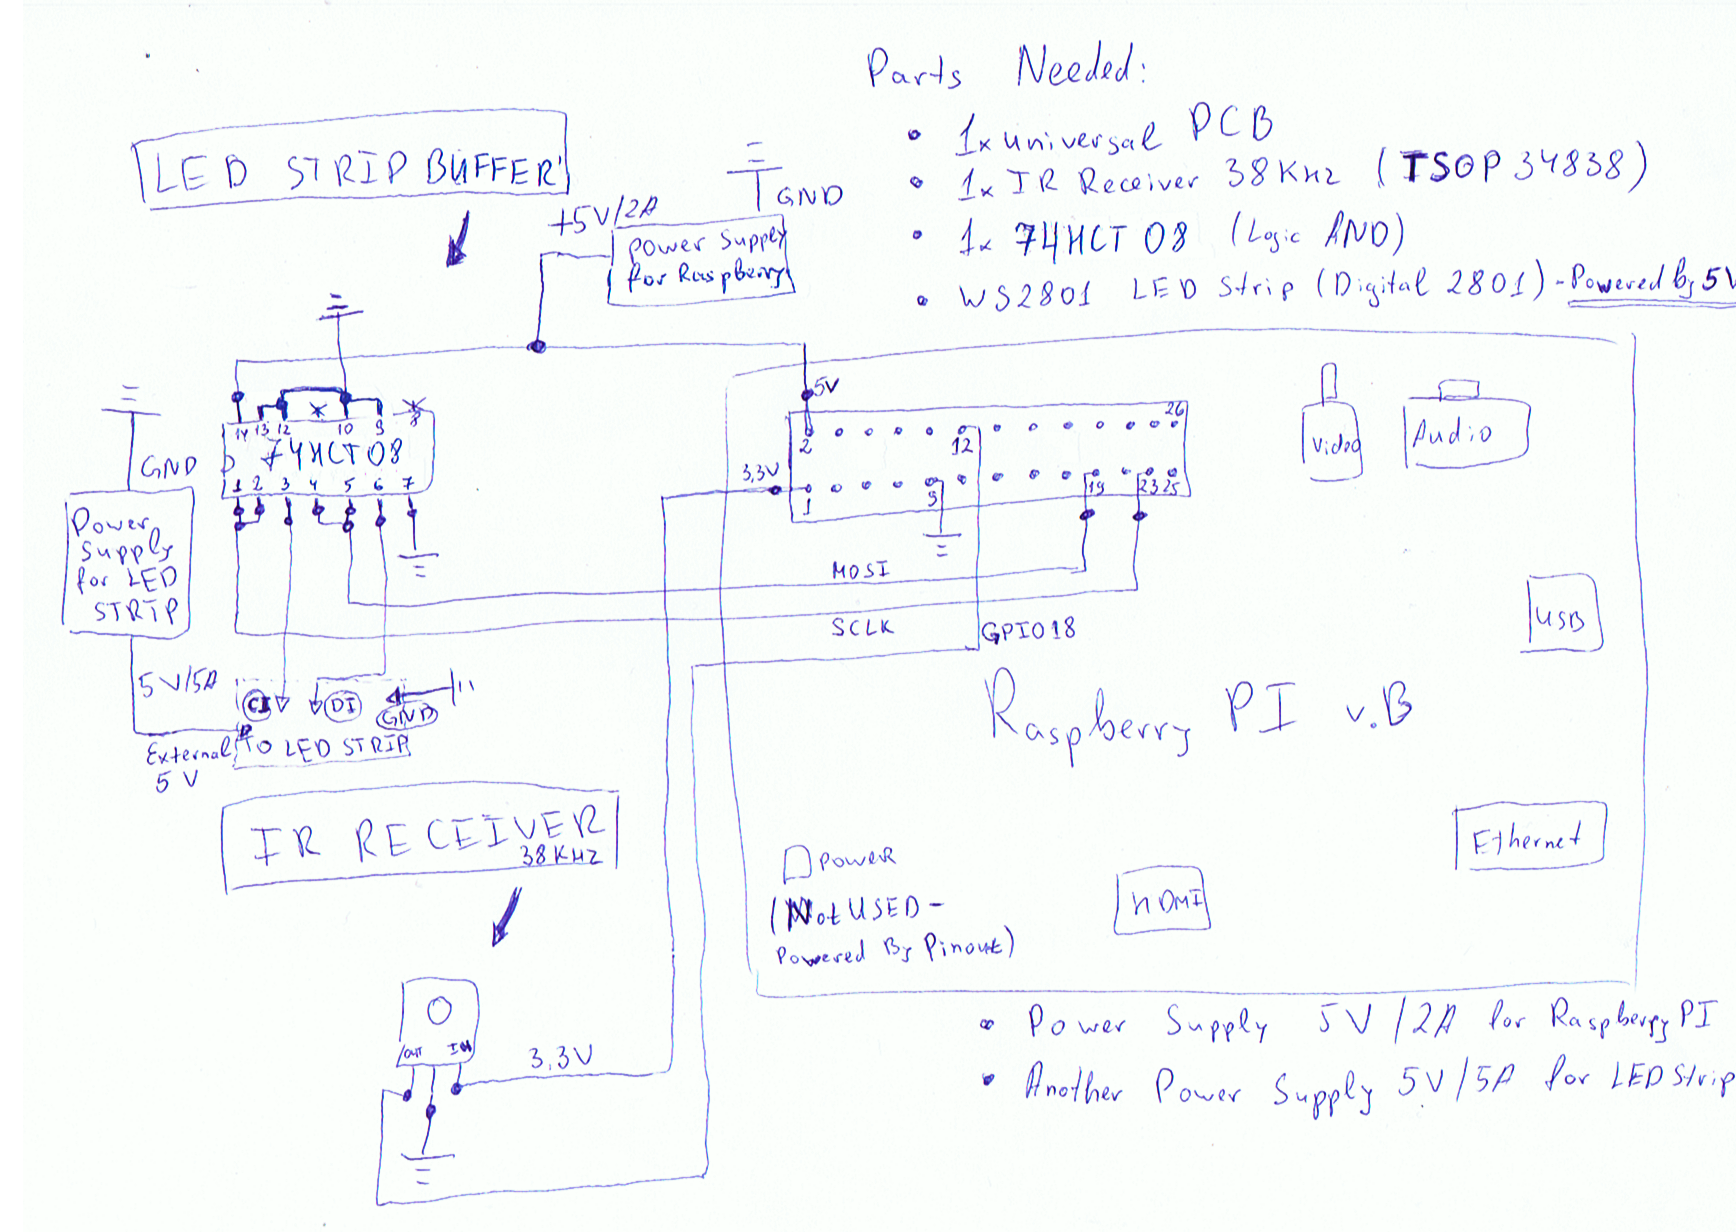 Parts Needed:
• 1x universal PCB
• 1x IR Receiver 38KHz (TSOP 34838)
• 1x 74HCT 08 (Logic AND)
• WS2801 LED Strip (Digital 2801) - Powered by 5V
LED STRIP BUFFER
+5V/2A
GND
Power Supply
for Raspberry
14 13 12 * 10 9 8
74HCT08
1 2 3 4 5 6 7
GND
Power
Supply
for LED
STRIP
5V/5A
CI DI GND
TO LED STRIP
External
5 V
5V
26
2 12
3,3V
1 9 19 23 25
MOSI
SCLK
GPIO18
Video
Audio
USB
Raspberry PI v.B
Ethernet
HDMI
POWER
(Not USED -
Powered By Pinout)
IR RECEIVER
38KHZ
OUT IN
3,3V
• Power Supply 5V/2A for Raspberry PI
• Another Power Supply 5V/5A for LED Strip